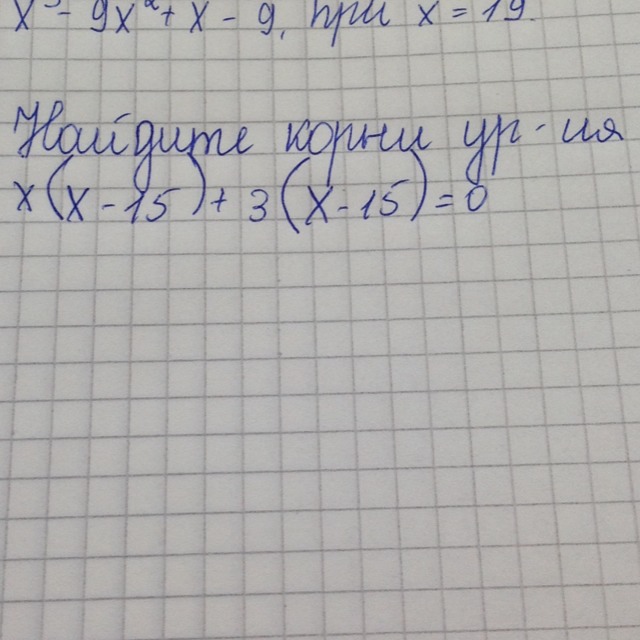 x³ - 9x² + x - 9, при x = 19.
Найдите корни ур-ия
x(x-15) + 3(x-15) = 0